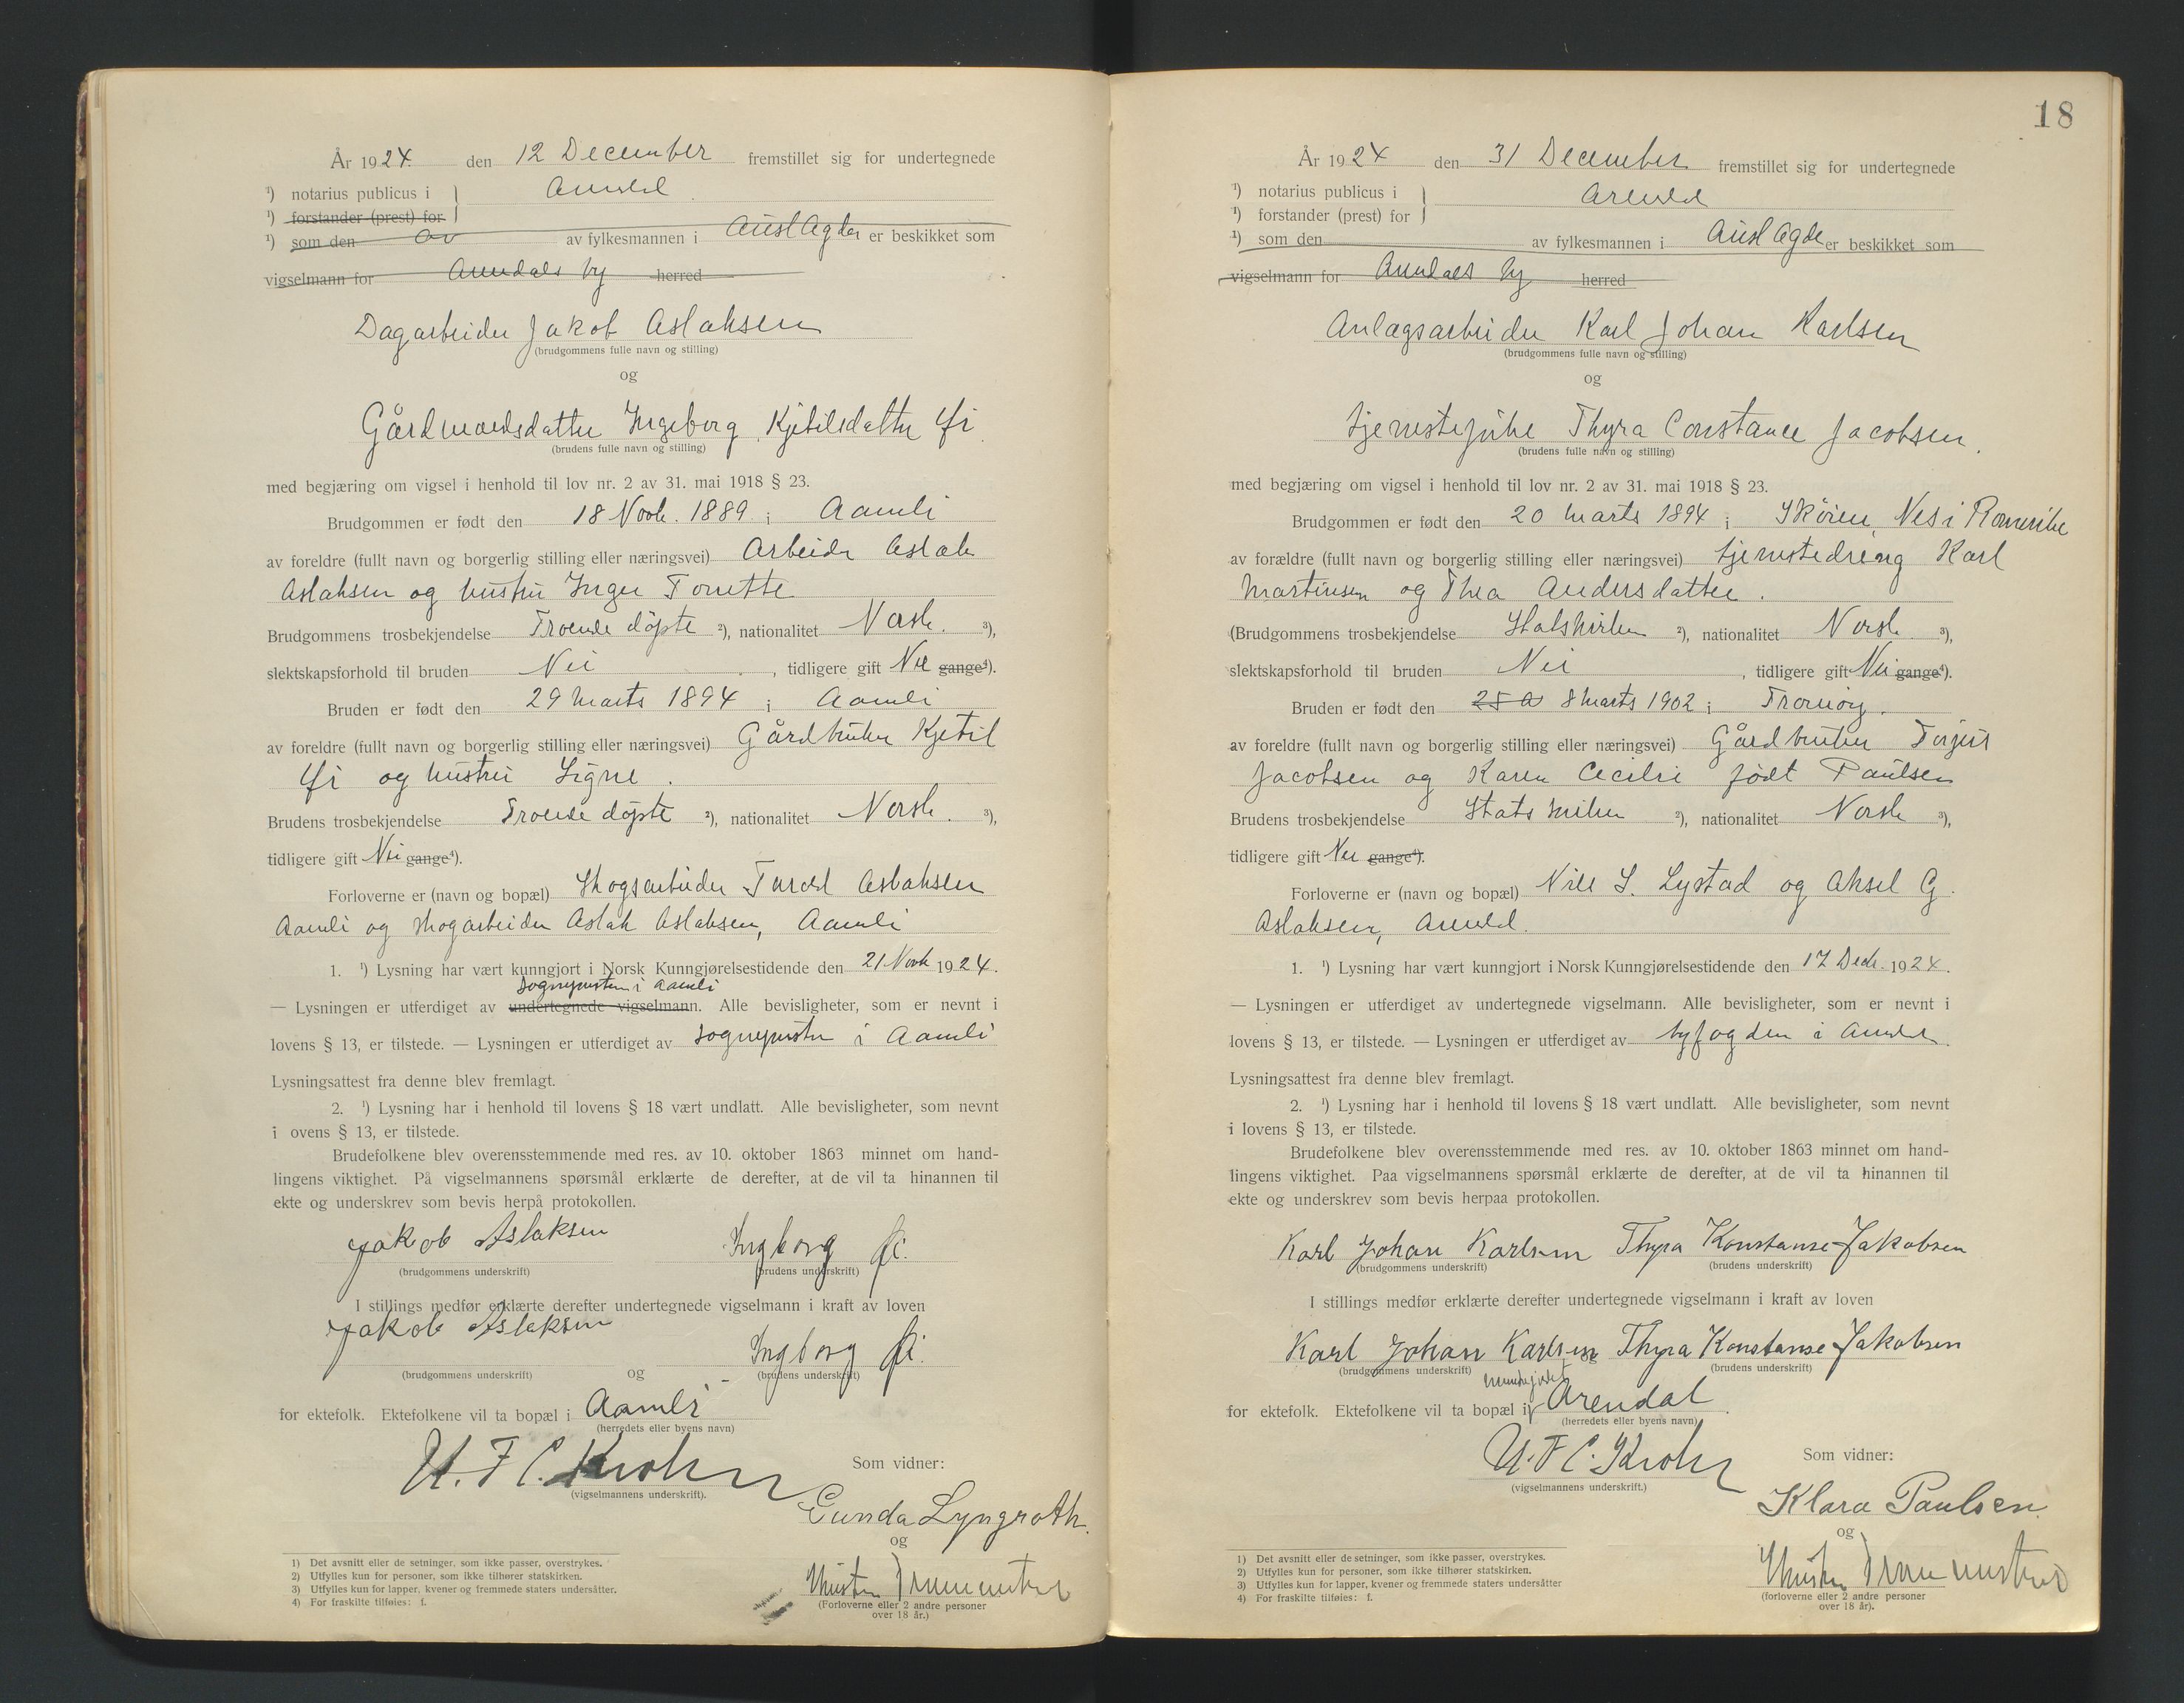 År 1924. den 12 December fremstillet sig for undertegnede
¹) notarius publicus i } Arendal
¹) forstander (prest) for
¹) som den av av fylkesmannen i Aust Agder er beskikket som
vigselmann for Arendals by herred
Dagarbeider Jakob Aslaksen
(brudgommens fulle navn og stilling)
og
Gårdmandsdatter Ingeborg Kjetilsdatter Øi
(brudens fulle navn og stilling)
med begjæring om vigsel i henhold til lov nr. 2 av 31. mai 1918 § 23.
Brudgommen er født den 18 Novbr. 1889 i Aamli
av foreldre (fullt navn og borgerlig stilling eller næringsvei) Arbeider Aslak
Aslaksen og hustru Inger Tonette
Brudgommens trosbekjendelse Troende døpte ²), nationalitet Norsk. ³),
slektskapsforhold til bruden Nei , tidligere gift Nei gange⁴).
Bruden er født den 29 Marts 1894 i Aamli
av foreldre (fullt navn og borgerlig stilling eller næringsvei) Gårdbruker Kjetil
Øi og hustru Signe.
Brudens trosbekjendelse Troende døpte ²), nationalitet Norsk. ³),
tidligere gift Nei gange⁴).
Forloverne er (navn og bopæl) Skogsarbeider Aslaksen
Aamli og skogarbeider Aslak Aslaksen, Aamli
1. ¹) Lysning har vært kunngjort i Norsk Kunngjørelsestidende den 21 Novbr 1924.
sogneprsten i Aamli
— Lysningen er utferdiget av undertegnede vigselmann. Alle bevisligheter, som er nevnt i
lovens § 13, er tilstede. — Lysningen er utferdiget av sogneprsten i Aamli
Lysningsattest fra denne blev fremlagt.
2. ¹) Lysning har i henhold til lovens § 18 vært undlatt. Alle bevisligheter, som nevnt
i ovens § 13, er tilstede.
Brudefolkene blev overensstemmende med res. av 10. oktober 1863 minnet om hand-
lingens viktighet. På vigselmannens spørsmål erklærte de derefter, at de vil ta hinannen til
ekte og underskrev som bevis herpå protokollen.
Jakob Aslaksen Ingborg Øi.
(brudgommens underskrift) (brudens underskrift)
I stillings medfør erklærte derefter undertegnede vigselmann i kraft av loven
Jakob Aslaksen Ingborg Øi.
(brudgommens underskrift) og (brudens underskrift)
for ektefolk. Ektefolkene vil ta bopæl i Aamli
(herredets eller byens navn)
U. F. C. Krohn Som vidner:
(vigselmannens underskrift).
Gunda Lyngroth.
og
(Forloverne eller 2 andre personer
over 18 år.)
1) Det avsnitt eller de setninger, som ikke passer, overstrykes.
2) Utfylles kun for personer, som ikke tilhører statskirken.
3) Utfylles kun for lapper, kvener og fremmede staters undersåtter.
4) For fraskilte tilføies: f.
18
År 1924 den 31 December fremstillet sig for undertegnede
¹) notarius publicus i } Arendal
¹) forstander (prest) for
¹) som den av fylkesmannen i Aust Agder er beskikket som
vigselmann for Arendals by herred
Anlægsarbeider Karl Johan Karlsen
(brudgommens fulle navn og stilling)
og
tjenestepike Thyra Constance Jacobsen.
(brudens fulle navn og stilling)
med begjæring om vigsel i henhold til lov nr. 2 av 31. mai 1918 § 23.
Brudgommen er født den 20 Marts 1894 i Skøien Nes i Romerike
av forældre (fullt navn og borgerlig stilling eller næringsvei) tjenestedreng Karl
Martinsen og Thea Andersdatter.
(Brudgommens trosbekjendelse Statskirken ²), nationalitet Norsk ³),
slektskapsforhold til bruden Nei , tidligere gift Nei gange⁴).
Bruden er født den 25 A 8 Marts 1902 i Tromøy.
av foreldre (fullt navn og borgerlig stilling eller næringsvei) Gårdbruker Terjus
Jacobsen og Karen Cecilie født Paulsen
Brudens trosbekjendelse Statskirken ²), nationalitet Norsk ³),
tidligere gift Nei gange⁴).
Forloverne er (navn og bopæl) Nils S. Lystad og Aksel G.
Aslaksen, Arendal.
1. ¹) Lysning har vært kunngjort i Norsk Kunngjørelsestidende den 17 Decbr. 1924.
— Lysningen er utferdiget av undertegnede vigselmann. Alle bevisligheter, som er nevnt i
lovens § 13, er tilstede. — Lysningen er utferdiget av byfogden i Arendal.
Lysningsattest fra denne blev fremlagt.
2. ¹) Lysning har i henhold til lovens § 18 vært undlatt. Alle bevisligheter, som nevnt
i lovens § 13, er tilstede.
Brudefolkene blev overensstemmende med res. av 10. oktober 1863 minnet om hand-
lingens viktighet. Paa vigselmannens spørsmål erklærte de derefter, at de vil ta hinannen til
ekte og underskrev som bevis herpaa protokollen.
Karl Johan Karlsen Thyra Konstanse Jakobsen
(brudgommens underskrift) (brudens underskrift)
I stillings medfør erklærte derefter undertegnede vigselmann i kraft av loven
Karl Johan Karlsen og Thyra Konstanse Jakobsen
(brudgommens underskrift) (brudens underskrift)
for ektefolk. Ektefolkene vil ta bopæl i Arendal.
(herredets eller byens navn)
U. F. C. Krohn Som vidner:
(vigselmannens underskrift.)
Klara Paulsen.
og
(forloverne eller 2 andre personer
over 18 år).
1) Det avsnitt eller de setninger, som ikke passer, overstrykes.
2) Utfylles kun for personer, som ikke tilhører statskirken.
3) Utfylles kun for lapper, kvener og fremmede staters undersåtter
4) For fraskilte tilføies: f.